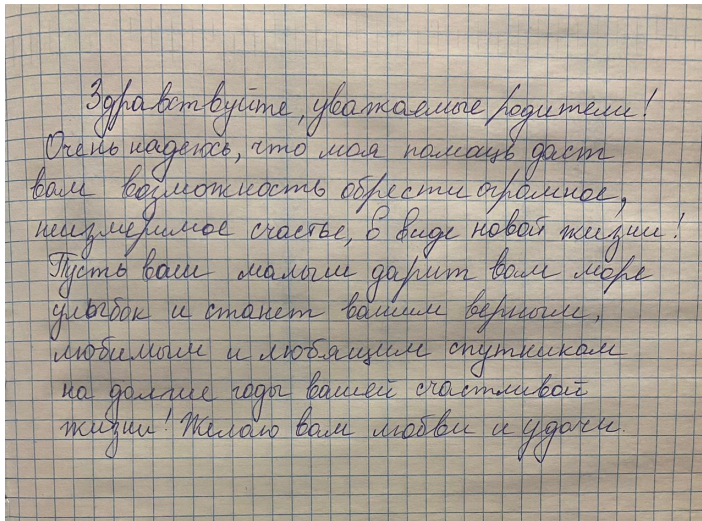 Здравствуйте, уважаемые родители!
Очень надеюсь, что моя помощь даст
вам возможность обрести огромное,
неизмеримое счастье, в виде новой жизни!
Пусть ваш малыш дарит вам море
улыбок и станет вашим верным,
любимым и любящим спутником
на долгие годы вашей счастливой
жизни! Желаю вам любви и удачи.